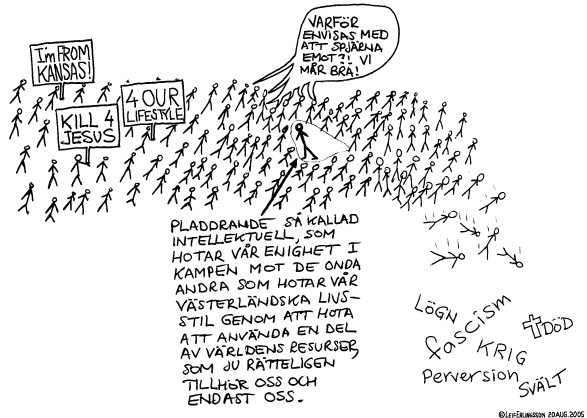 I'm FROM
KANSAS!
4 OUR
LIFESTYLE
KILL 4
JESUS
VARFÖR
ENVISAS MED
ATT SPJÄRNA
EMOT?! VI
MÅR BRA!
PLADDRANDE SÅ KALLAD
INTELLEKTUELL, SOM
HOTAR VÅR ENIGHET I
KAMPEN MOT DE ONDA
ANDRA SOM HOTAR VÅR
VÄSTERLÄNDSKA LIVS-
STIL GENOM ATT HOTA
ATT ANVÄNDA EN DEL
AV VÄRLDENS RESURSER,
SOM JU RÄTTELIGEN
TILLHÖR OSS OCH
ENDAST OSS.
LÖGN
fascism
DÖD
KRIG
Perversion
SVÄLT
© LEIF ERLINGSSON 20 AUG. 2005